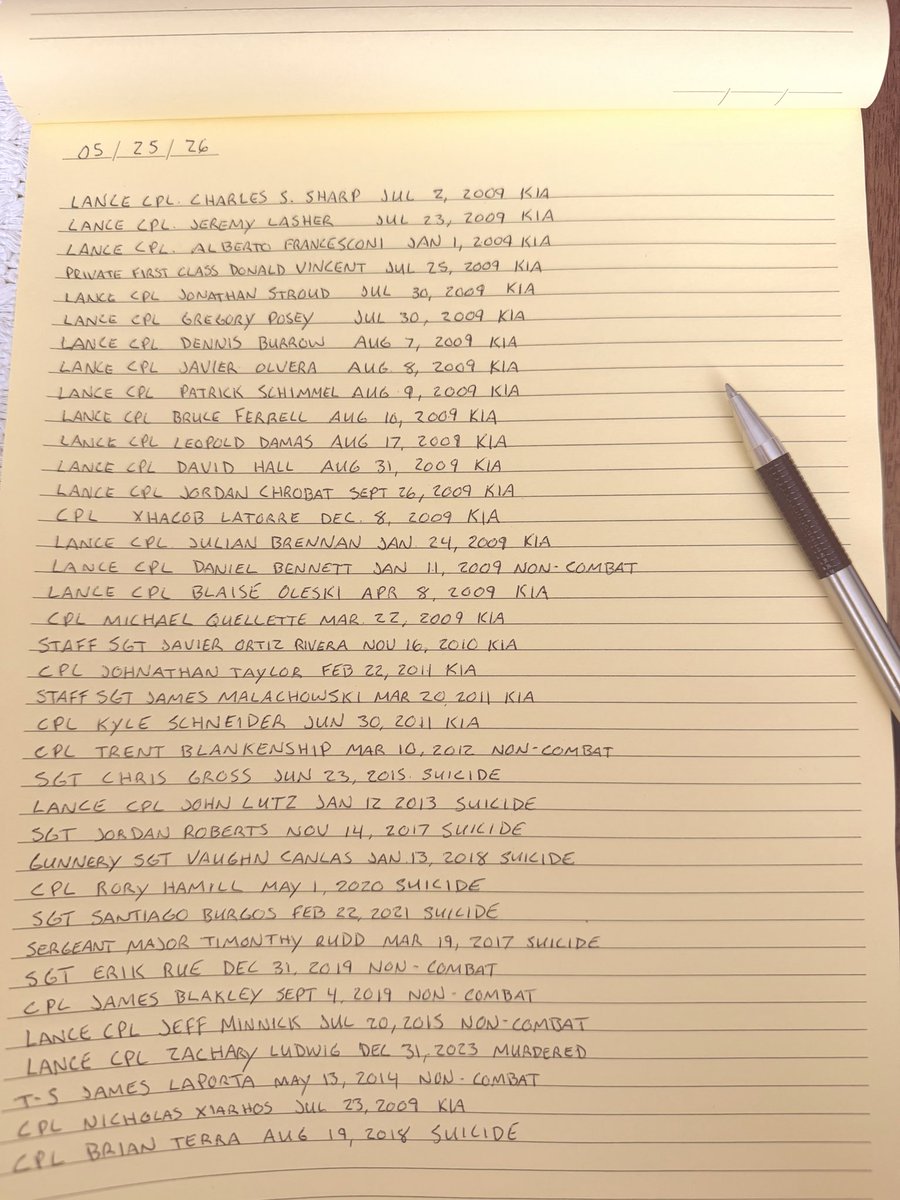 05/25/26
LANCE CPL. CHARLES S. SHARP JUL 2, 2009 KIA
LANCE CPL. JEREMY LASHER JUL 23, 2009 KIA
LANCE CPL. ALBERTO FRANCESCONI JAN 1, 2009 KIA
PRIVATE FIRST CLASS DONALD VINCENT JUL 25, 2009 KIA
LANCE CPL JONATHAN STROUD JUL 30, 2009 KIA
LANCE CPL GREGORY POSEY JUL 30, 2009 KIA
LANCE CPL DENNIS BURROW AUG 7, 2009 KIA
LANCE CPL JAVIER OLVERA AUG 8, 2009 KIA
LANCE CPL PATRICK SCHIMMEL AUG 9, 2009 KIA
LANCE CPL BRUCE FERRELL AUG 10, 2009 KIA
LANCE CPL LEOPOLD DAMAS AUG 17, 2009 KIA
LANCE CPL DAVID HALL AUG 31, 2009 KIA
LANCE CPL JORDAN CHROBAT SEPT 26, 2009 KIA
CPL XHACOB LATORRE DEC. 8, 2009 KIA
LANCE CPL. JULIAN BRENNAN JAN. 24, 2009 KIA
LANCE CPL DANIEL BENNETT JAN 11, 2009 NON-COMBAT
LANCE CPL BLAISE OLESKI APR 8, 2009 KIA
CPL MICHAEL OUELLETTE MAR. 22, 2009 KIA
STAFF SGT JAVIER ORTIZ RIVERA NOV 16, 2010 KIA
CPL JOHNATHAN TAYLOR FEB 22, 2011 KIA
STAFF SGT JAMES MALACHOWSKI MAR 20, 2011 KIA
CPL KYLE SCHNEIDER JUN 30, 2011 KIA
CPL TRENT BLANKENSHIP MAR 10, 2012 NON-COMBAT
SGT CHRIS GROSS JUN 23, 2015. SUICIDE
LANCE CPL JOHN LUTZ JAN 12 2013 SUICIDE
SGT JORDAN ROBERTS NOV 14, 2017 SUICIDE
GUNNERY SGT VAUGHN CANLAS JAN. 13, 2018 SUICIDE
CPL RORY HAMILL MAY 1, 2020 SUICIDE
SGT SANTIAGO BURGOS FEB 22, 2021 SUICIDE
SERGEANT MAJOR TIMONTHY RUDD MAR 19, 2017 SUICIDE
SGT ERIK RUE DEC 31, 2019 NON-COMBAT
CPL JAMES BLAKLEY SEPT 4, 2019 NON-COMBAT
LANCE CPL JEFF MINNICK JUL 20, 2015 NON-COMBAT
LANCE CPL ZACHARY LUDWIG DEC 31, 2023 MURDERED
T-5 JAMES LAPORTA MAY 13, 2014 NON-COMBAT
CPL NICHOLAS XIARHOS JUL 23, 2009 KIA
CPL BRIAN TERRA AUG 19, 2018 SUICIDE